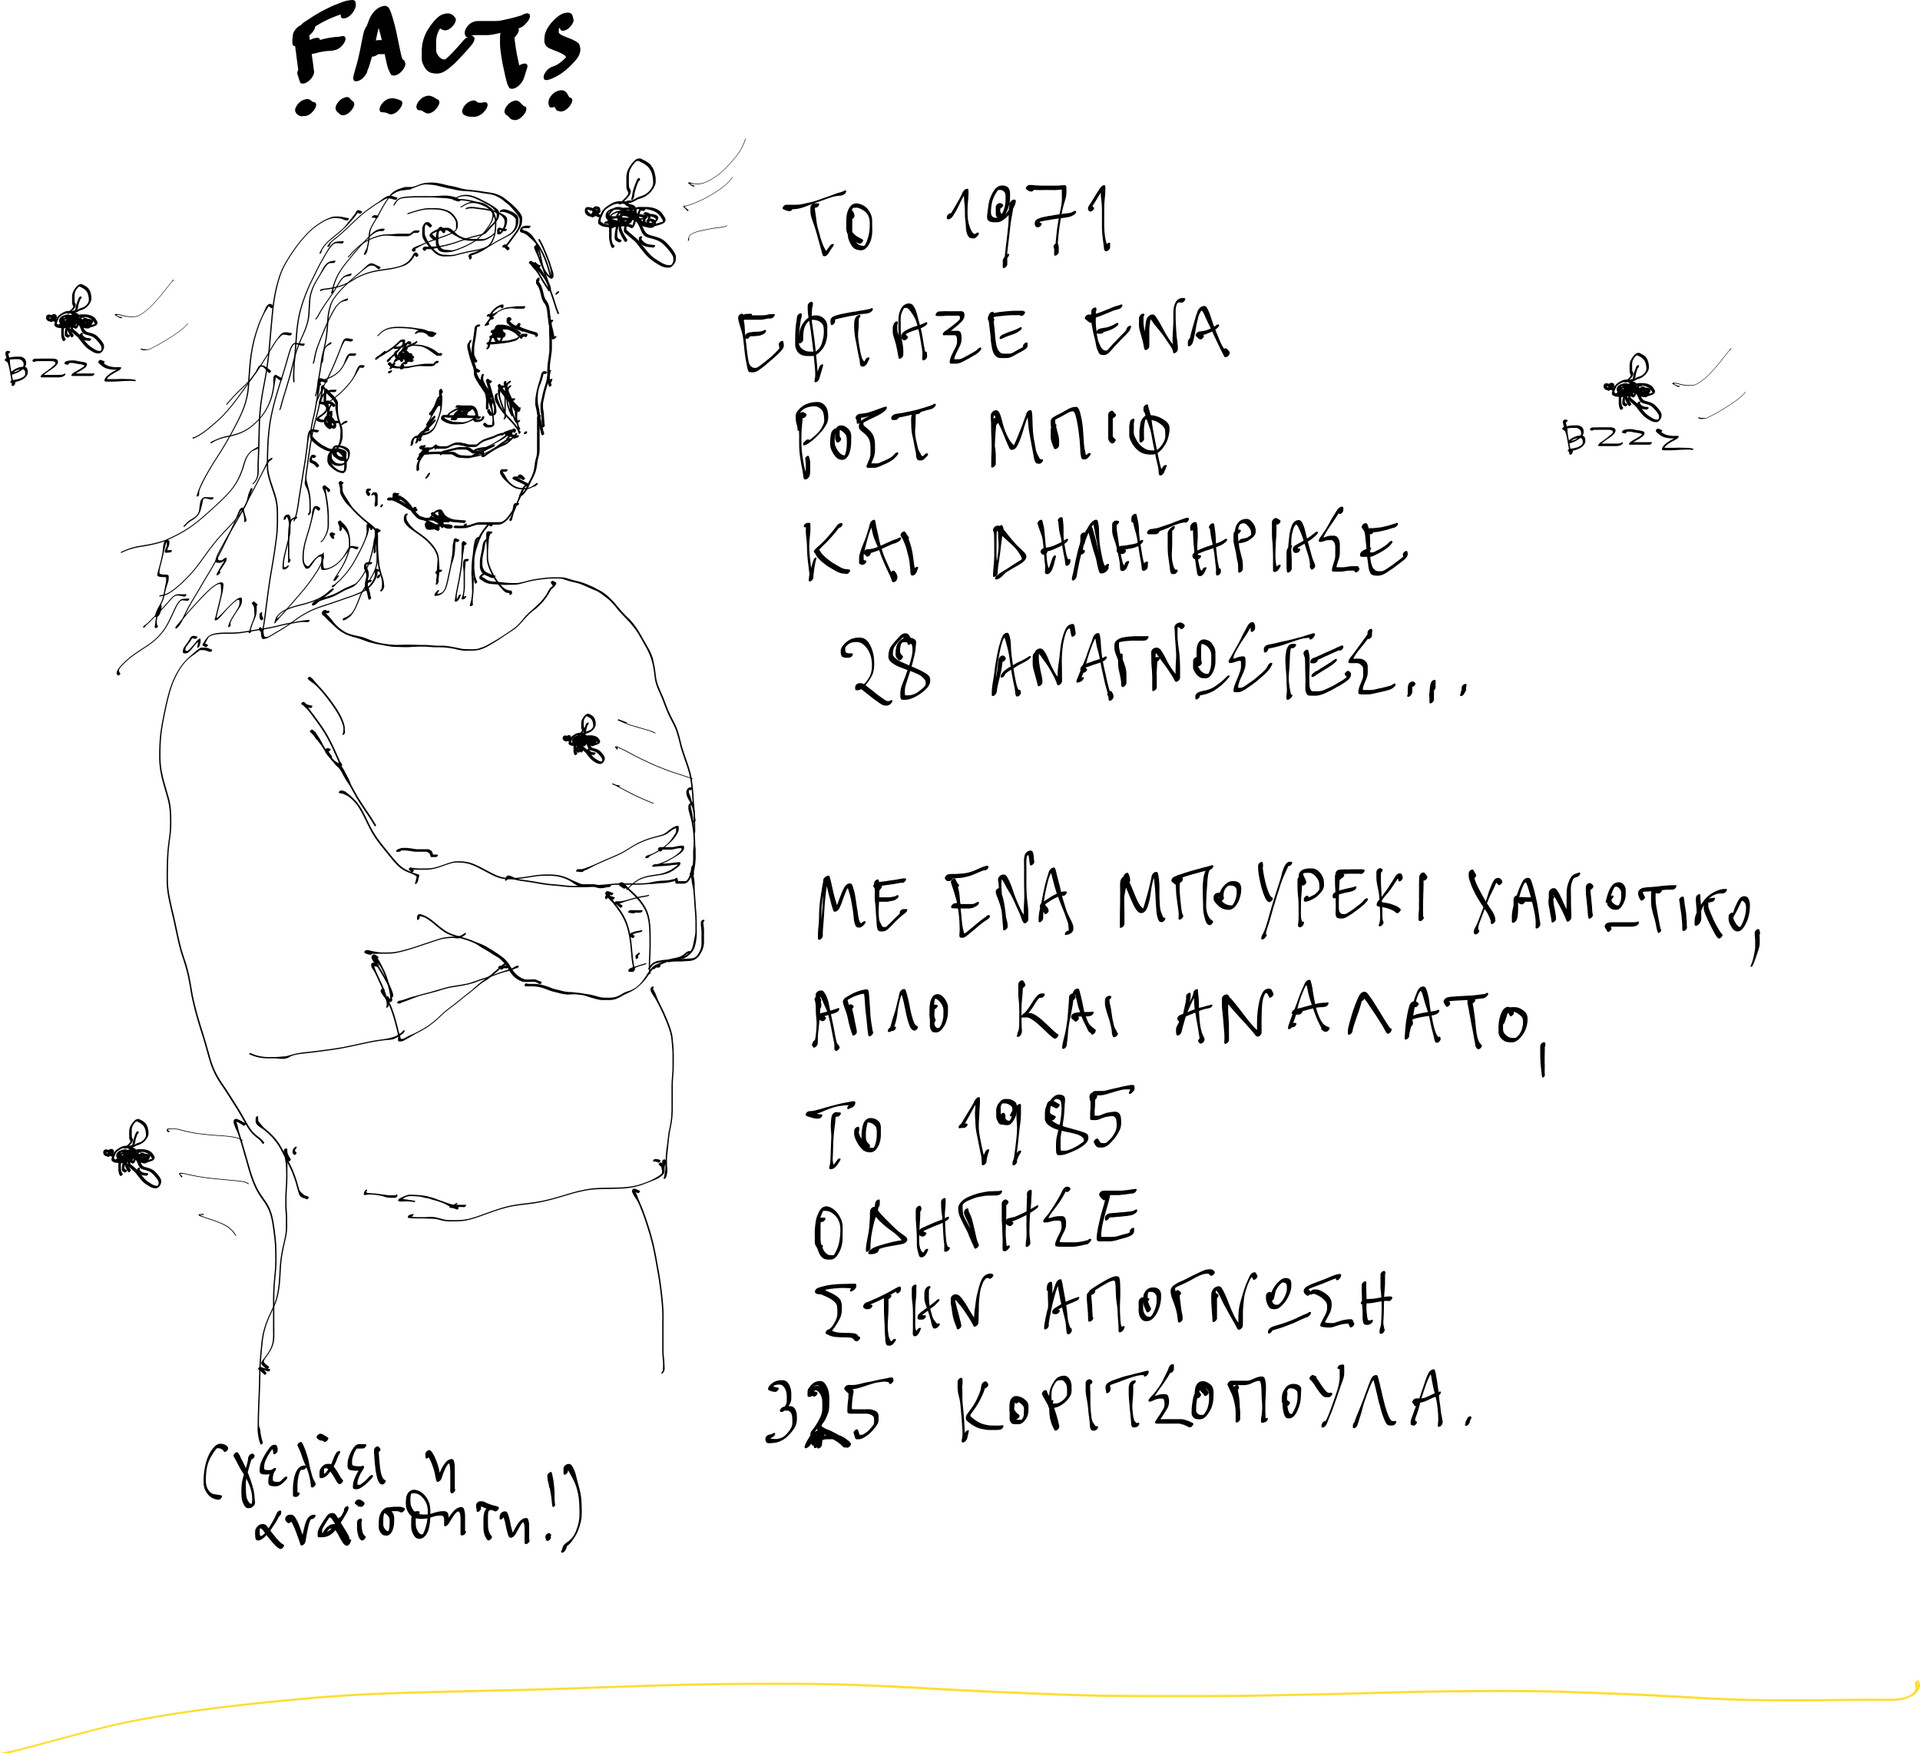 FACTS
ΤΟ 1971
ΕΦΤΑΣΕ ΕΝΑ
ΡΟΣΤ ΜΠΙΦ
ΚΑΙ ΔΗΛΗΤΗΡΙΑΣΕ
28 ΑΝΑΓΝΩΣΤΕΣ...
ΒΖΖΖ
ΒΖΖΖ
ΜΕ ΕΝΑ ΜΠΟΥΡΕΚΙ ΧΑΝΙΩΤΙΚΟ,
ΑΠΛΟ ΚΑΙ ΑΝΑΛΑΤΟ,
ΤΟ 1985
ΟΔΗΓΗΣΕ
ΣΤΗΝ ΑΠΟΓΝΩΣΗ
325 ΚΟΡΙΤΣΟΠΟΥΛΑ.
(γελάει η
αναίσθητη!)